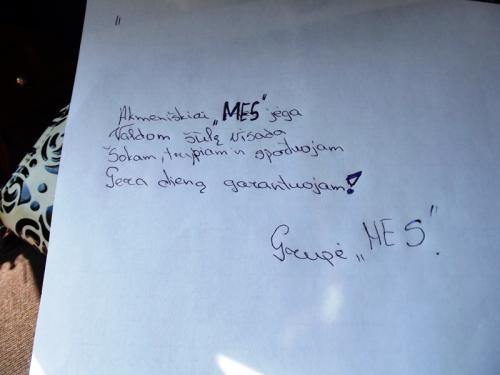 "
Akmeniškiai „MES" jėga
Valdom šūlę visada
Šokam, trypiam ir sportuojam
Gera dieną garantuojam!
Grupė „MES".